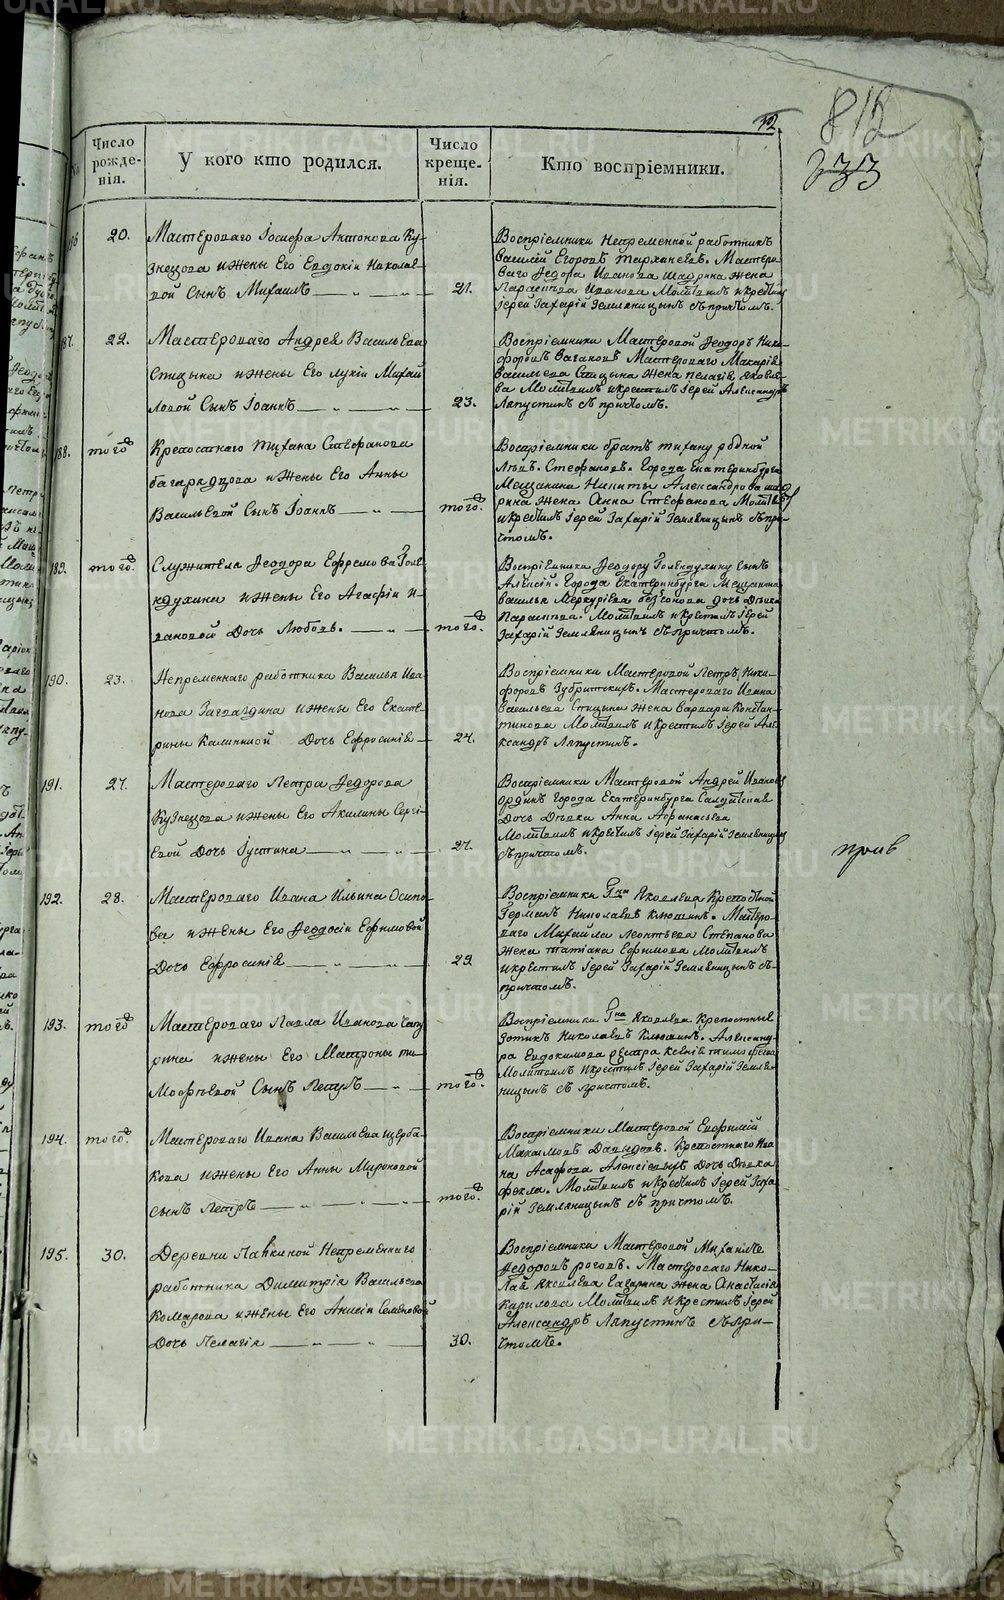 12
812
333
Число рожденія.
У кого кто родился.
Число крещенія.
Кто воспріемники.
186
20.
Мастероваго Іосифа Антонова Ку-
знецова и жены Его Евдокіи Николае-
вой Сынъ Михаилъ
21.
Воспріемники Непременной работникъ
Василій Егоровъ Мастеро-
ваго Федора Иванова Шадрина жена
Парасковья Иванова Молитвилъ и крестилъ
Іерей Захарій Земляницынъ съ причтомъ.
187.
22.
Мастероваго Андрея Васильева
Спицына и жены Его Лукіи Михай
ловой Сынъ Іоаннъ
23.
Воспріемники Мастеровой Феодоръ Ники-
форовъ Ваганов Мастероваго Макарія
Васильева Спицына жена Пелагія Яковле-
ва Молитвилъ и крестилъ Іерей Александръ
Ляпустинъ съ причтомъ.
188.
того
Крепостнаго Тихана Стефанова
багарядцова и жены Его Анны
Васильевой Сынъ Іоаннъ
того.
Воспріемники братъ тихану родной
Львъ. Стефановъ. Города Екатеринбурга
Мещанина Никиты Александрова ша-
рина жена Анна Стефанова Молитвилъ
и крестилъ Іерей Захарій Земляницынъ съ при-
чтомъ.
189.
того
Служителя Феодора Ефремова Голе
ндухина и жены Его Агафіи И-
вановой Дочь Любовь.
того.
Воспріемники Феодору Голендухину сынъ
Алексій. Города Екатеринбурга Мещанина
Василья Меркуріева безсонова дочь девка
Парасковья. Молитвилъ и крестилъ Іерей
Захарій Земляницынъ съ причтомъ.
190.
23.
Непременнаго работника Василья Ива
нова Загвоздина и жены Его Екате-
рины Калининой Дочь Ефросинія
24.
Воспріемники Мастеровой Петръ Ники-
форовъ Зубрицкихъ. Мастероваго Ивана
Васильева Спицына жена Варвара Констан-
тинова Молитвилъ и крестилъ Іерей Але-
ксандръ Ляпустинъ.
191.
27.
Мастероваго Петра Федорова
Кузнецова и жены Его Акилины Сергі-
евой Дочь Іустина
27.
Воспріемники Мастеровой Андрей Ивановъ
Ординъ Города Екатеринбурга Салдатская
Дочь Девка Анна Афанасьева
Молитвилъ и крестилъ Іерей Захарій Земляницынъ
съ причтомъ.
192.
28.
Мастероваго Ивана Ильина Осипо-
ва и жены Его Феодосіи Ефимовой
Дочь Ефросинія
29
Воспріемники Гна Яковлева Крепостной
Германъ Николаевъ Клюшинъ. Мастеро-
ваго Михайла Леонтьева Степанова
жена татіана Ефимова Молитвилъ
и крестилъ Іерей Захарій Земляницынъ съ
причтомъ.
193.
того
Мастероваго Павла Иванова
рина и жены Его Матроны ти-
мофеевой Сынъ Петръ
того.
Воспріемники Гна Яковлева Крепостные
Зотикъ Николаевъ Клюшинъ. Александ-
ра Евдокимова сестра Ксенія тимофеева
Молитвилъ и крестилъ Іерей Захарій Земля-
ницынъ съ причтомъ.
194.
того.
Мастероваго Ивана Васильева щерба-
кова и жены Его Анны Мироновой
сынъ Петръ
того.
Воспріемники Мастеровой Евфимій
Максимовъ Давыдовъ. Крепостнаго Ива
на Асафова Алексіевыхъ Дочь Девка
Фекла. Молитвилъ и крестилъ Іерей Заха
рій Земляницынъ съ причтомъ.
195.
30.
Деревни Павкиной Непременнаго
работника Димитрія Васильева
Комарова и жены Его Анисіи Семеновой
Дочь Пелагія
30.
Воспріемники Мастеровой Михаиле
Федоровъ роговъ. Мастероваго Нико-
лая Яковлева Гагарина жена Анастасія
Карилова Молитвилъ и крестилъ Іерей
Александръ Ляпустинъ съ при-
чтомъ.
METRIKI.GASO-URAL.RU